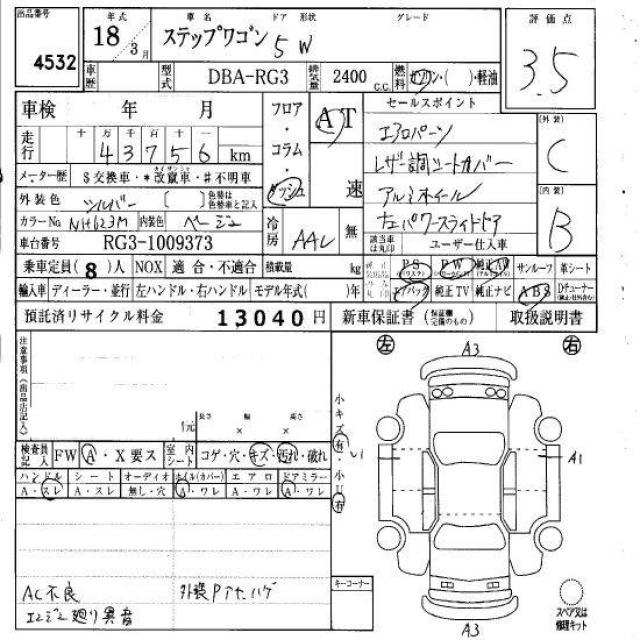 出品番号 4532
年式 18/3月
車名 ステップワゴン
ドア 形状 5W
グレード
評価点 3.5
車歴
型式 DBA-RG3
排気量 2400 C.C.
燃料 ガソリン・( )・軽油
車検 年 月
フロア・コラム・ダッシュ
AT 速
セールスポイント
走行 十 万 千 百 十 一
43756 km
エアロパーツ
レザー調シートカバー
アルミホイール
左パワースライドドア
(外装) C
(内装) B
メーター歴 $交換車・*改竄車・#不明車
外装色 シルバー ( ) 色替は色替車と記入
カラーNo NH623M 内装色 ベージュ
車台番号 RG3-1009373
冷房 AAC 無
該当車は丸印 ユーザー仕入車
乗車定員(8)人 NOX 適合・不適合 積載量 kg
PS PW 純正AW サンルーフ 革シート
輸入車 ディーラー・並行 左ハンドル・右ハンドル モデル年式( )年
エアバック 純正TV 純正ナビ ABS Dチューナー
預託済リサイクル料金 13040円
新車保証書 (保証継続完備のもの) 取扱説明書
注意事項(出品店記入)
左 A3 右
長さ 幅 高さ
× ×
小キズ有・小U有
検査員記入 FW A・X要ス
室内シート コゲ・穴・キズ・汚れ・破れ
ハンドル シート オーディオ ホイル(カバー) エアロ ドアミラー
A・スレ A・スレ 無し・穴 A・ワレ A・ワレ A・ワレ
A1
キーコーナー
AC不良
外装Pアセハゲ
エンジン廻り異音
スペア又は修理キット
A3